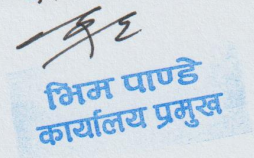 भिम पाण्डे
कार्यालय प्रमुख